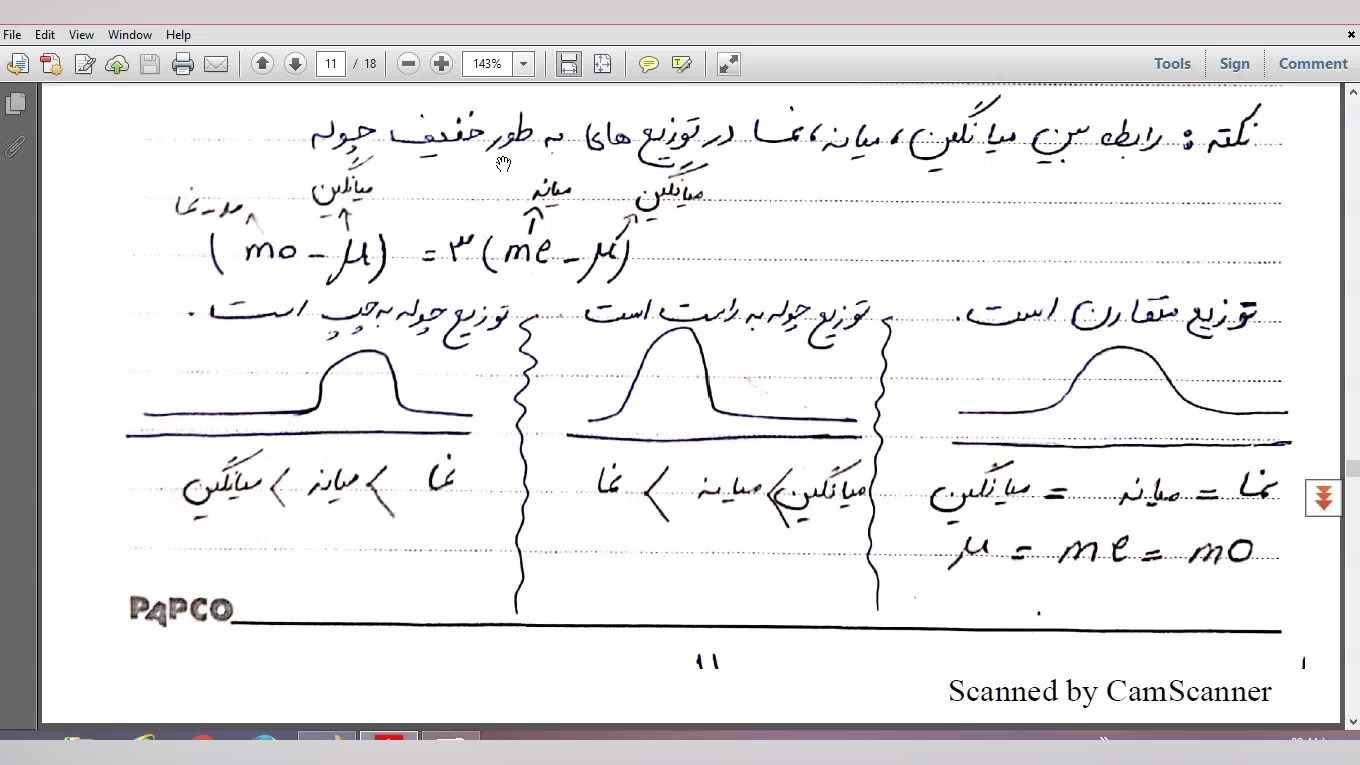 File Edit View Window Help
11 / 18 143% Tools Sign Comment
نکته : رابطه بین میانگین ، میانه ، نما در توزیع های به طور خفیف چوله
مد-نما میانگین میانه میانگین
(mo - μ) = ۳ (me - μ)
توزیع متقارن است .
نما = میانه = میانگین
μ = me = mo
توزیع چوله به راست است
میانگین > میانه > نما
توزیع چوله به چپ است .
نما > میانه > میانگین
PAPCO
۱۱
Scanned by CamScanner